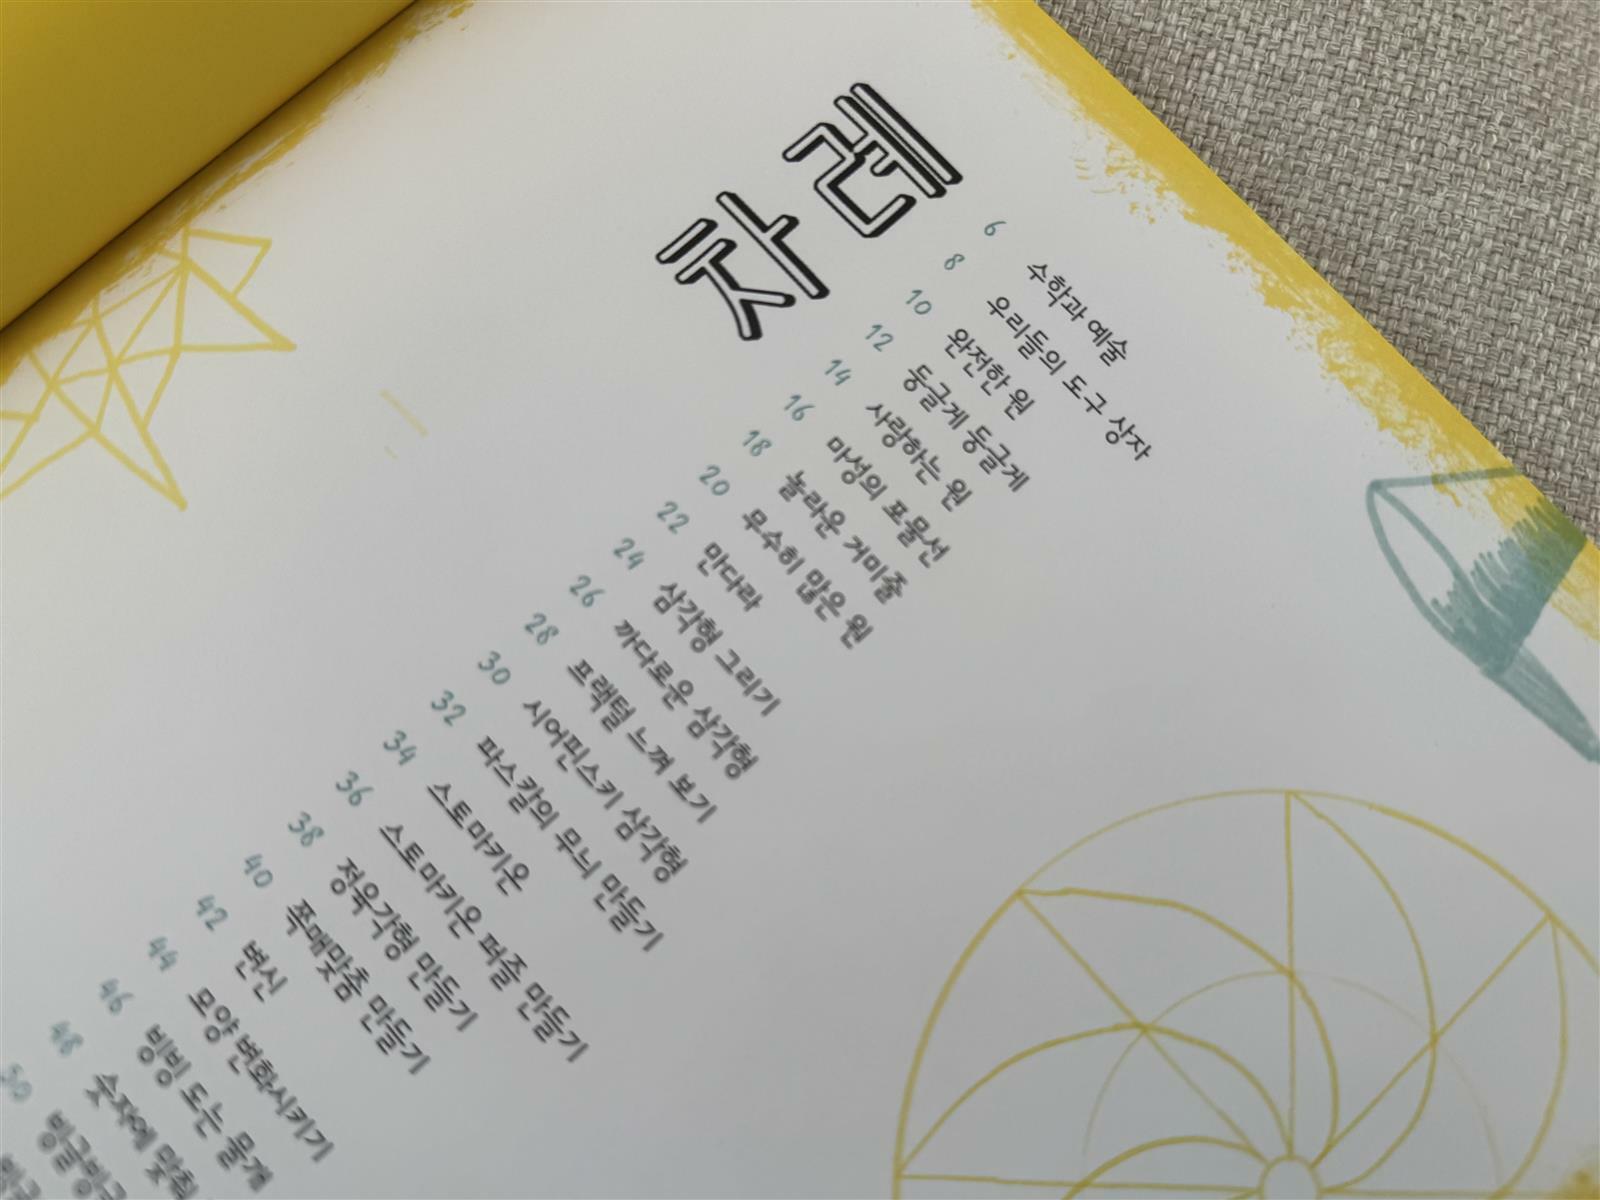 차례
6 수학과 예술
8 우리들의 도구 상자
10 완전한 원
12 둥글게 둥글게
14 사랑하는 원
16 마성의 포물선
18 놀라운 거미줄
20 무수히 많은 원
22 만다라
24 삼각형 그리기
26 까다로운 삼각형
28 프랙털 느껴 보기
30 시어핀스키 삼각형
32 파스칼의 무늬 만들기
34 스토마키온
36 스토마키온 퍼즐 만들기
38 정육각형 만들기
40 쪽매맞춤 만들기
42 변신
44 모양 변화시키기
46 빙빙 도는 물개
48 숫자에 맞춰
50